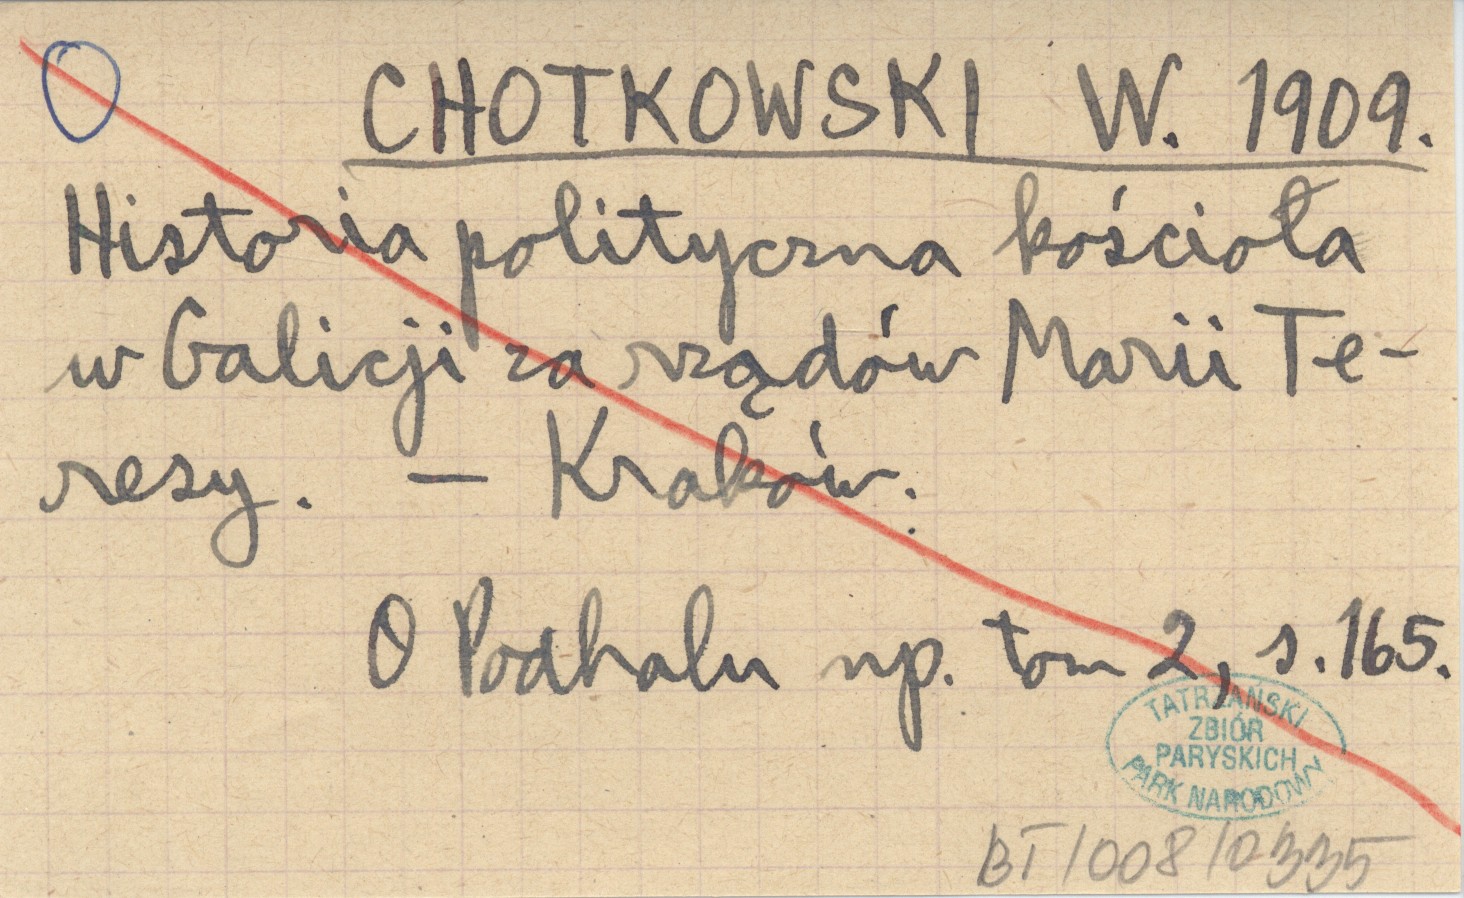 CHOTKOWSKI W. 1909.
Historia polityczna kościoła
w Galicji za rządów Marii Te-
resy. — Kraków.
O Podhalu np. tom 2, s. 165.
TATRZAŃSKI
ZBIÓR
PARYSKICH
PARK NARODOWY
BT/008/0335